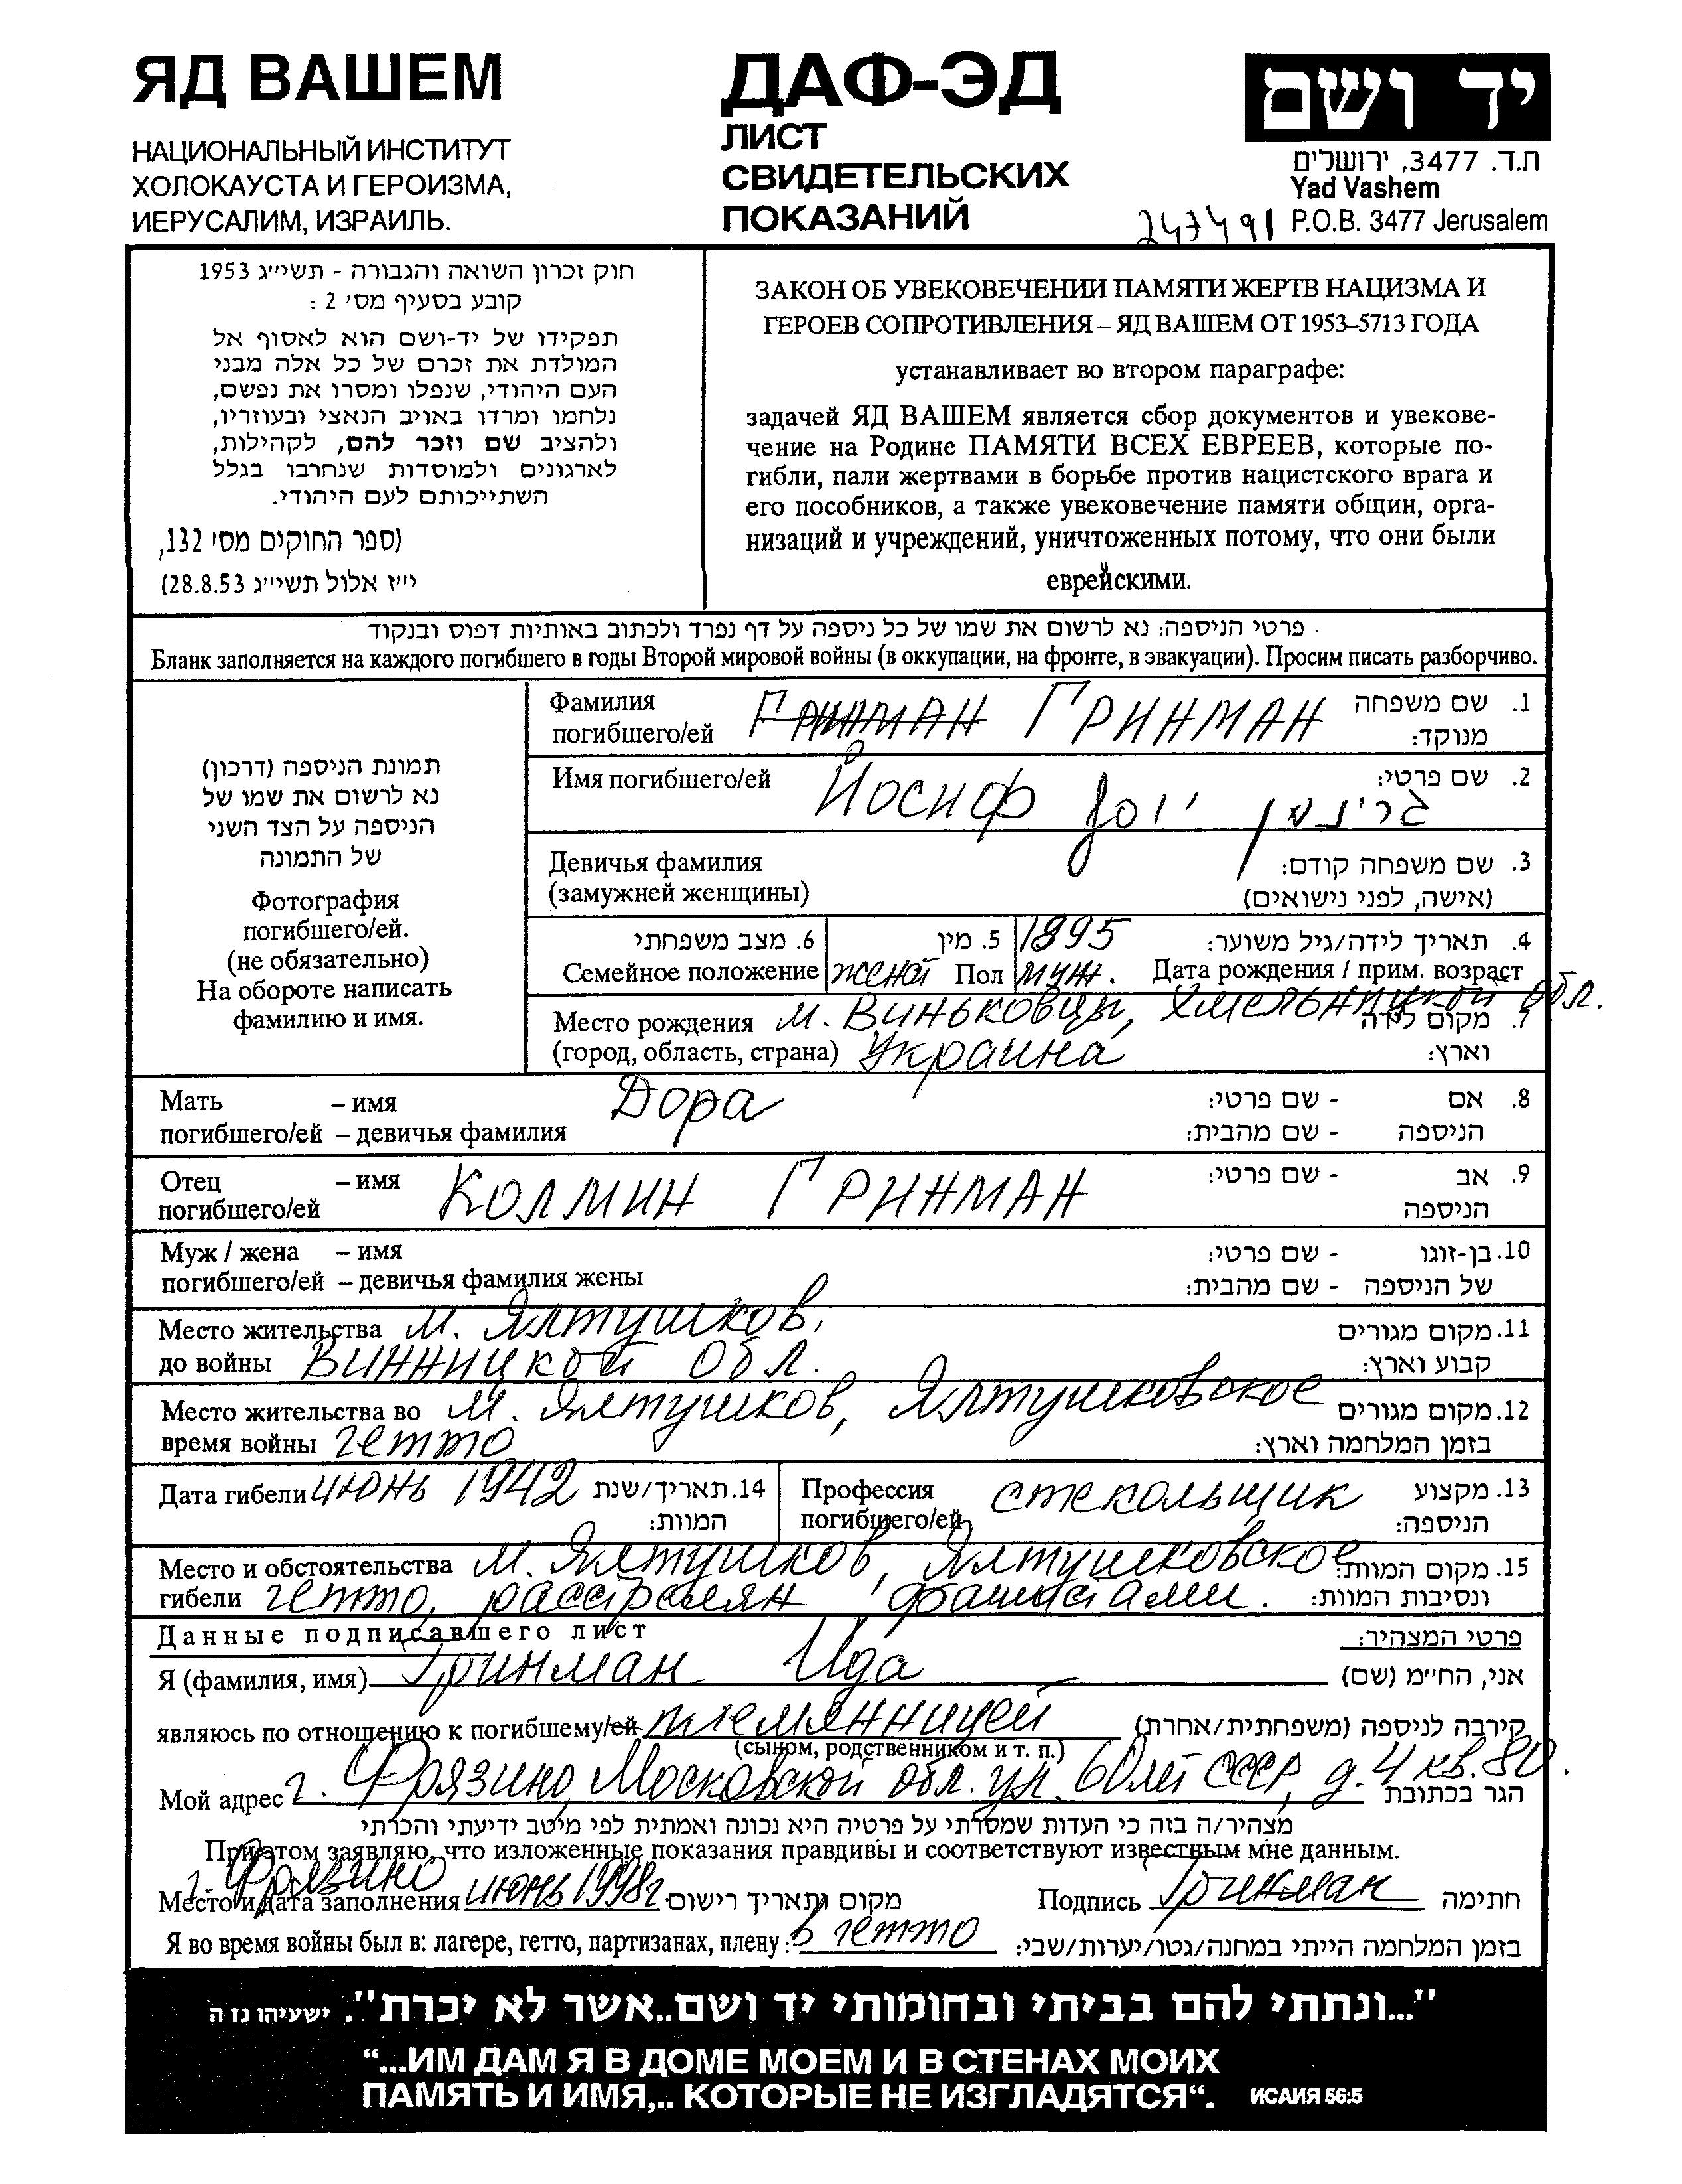 ЯД ВАШЕМ
НАЦИОНАЛЬНЫЙ ИНСТИТУТ
ХОЛОКАУСТА И ГЕРОИЗМА,
ИЕРУСАЛИМ, ИЗРАИЛЬ.
ДАФ-ЭД
ЛИСТ
СВИДЕТЕЛЬСКИХ
ПОКАЗАНИЙ
יד ושם
ת.ד. 3477, ירושלים
Yad Vashem
P.O.B. 3477 Jerusalem
247491
חוק זכרון השואה והגבורה - תשי״ג 1953
קובע בסעיף מס׳ 2 :
תפקידו של יד-ושם הוא לאסוף אל
המולדת את זכרם של כל אלה מבני
העם היהודי, שנפלו ומסרו את נפשם,
נלחמו ומרדו באויב הנאצי ובעוזריו,
ולהציב שם וזכר להם, לקהילות,
לארגונים ולמוסדות שנחרבו בגלל
השתייכותם לעם היהודי.
(ספר החוקים מס׳ 132,
י״ז אלול תשי״ג 28.8.53)
ЗАКОН ОБ УВЕКОВЕЧЕНИИ ПАМЯТИ ЖЕРТВ НАЦИЗМА И
ГЕРОЕВ СОПРОТИВЛЕНИЯ – ЯД ВАШЕМ ОТ 1953–5713 ГОДА
устанавливает во втором параграфе:
задачей ЯД ВАШЕМ является сбор документов и увекове-
чение на Родине ПАМЯТИ ВСЕХ ЕВРЕЕВ, которые по-
гибли, пали жертвами в борьбе против нацистского врага и
его пособников, а также увековечение памяти общин, орга-
низаций и учреждений, уничтоженных потому, что они были
еврейскими.
פרטי הניספה: נא לרשום את שמו של כל ניספה על דף נפרד ולכתוב באותיות דפוס ובנקוד
Бланк заполняется на каждого погибшего в годы Второй мировой войны (в оккупации, на фронте, в эвакуации). Просим писать разборчиво.
תמונת הניספה (דרכון)
נא לרשום את שמו של
הניספה על הצד השני
של התמונה
Фотография
погибшего/ей.
(не обязательно)
На обороте написать
фамилию и имя.
Фамилия Гринман ГРИНМАН 1. שם משפחה
погибшего/ей מנוקד:
Имя погибшего/ей Йосиф יוסף גרינמן 2. שם פרטי:
Девичья фамилия 3. שם משפחה קודם:
(замужней женщины) (אישה, לפני נישואים)
6. מצב משפחתי 5. מין 1895 4. תאריך לידה/גיל משוער:
Семейное положение женат Пол муж. Дата рождения / прим. возраст
Место рождения м. Виньковцы, Хмельницкой обл. 7. מקום לידה
(город, область, страна) Украина וארץ:
Мать – имя Дора 8. אם - שם פרטי:
погибшего/ей – девичья фамилия הניספה - שם מהבית:
Отец – имя Колмин ГРИНМАН 9. אב - שם פרטי:
погибшего/ей הניספה
Муж / жена – имя 10. בן-זוגו - שם פרטי:
погибшего/ей – девичья фамилия жены של הניספה - שם מהבית:
Место жительства м. Ялтушков, 11. מקום מגורים
до войны Винницкой обл. קבוע וארץ:
Место жительства во м. Ялтушков, Ялтушковское 12. מקום מגורים
время войны гетто בזמן המלחמה וארץ:
Дата гибели июнь 1942 14. תאריך/שנת המוות:
Профессия стекольщик 13. מקצוע
погибшего/ей הניספה:
Место и обстоятельства м. Ялтушков, Ялтушковское 15. מקום המוות:
гибели гетто, расстрелян фашистами. ונסיבות המוות:
Данные подписавшего лист פרטי המצהיר:
Я (фамилия, имя) Гринман Ида אני, הח״מ (שם)
являюсь по отношению к погибшему/ей племянницей קירבה לניספה (משפחתית/אחרת)
(сыном, родственником и т. п.)
Мой адрес г. Фрязино, Московской обл. ул. 60 лет СССР, д. 4 кв. 80. הגר בכתובת
מצהיר/ה בזה כי העדות שמסרתי על פרטיה היא נכונה ואמתית לפי מיטב ידיעתי והכרתי
При этом заявляю, что изложенные показания правдивы и соответствуют известным мне данным.
г. Фрязино
Место и дата заполнения июнь 1998г. מקום ותאריך רישום Подпись Гринман חתימה
Я во время войны был в: лагере, гетто, партизанах, плену: в гетто בזמן המלחמה הייתי במחנה/גטו/יערות/שבי:
"...ונתתי להם בביתי ובחומותי יד ושם..אשר לא יכרת". ישעיהו נז ה
“...ИМ ДАМ Я В ДОМЕ МОЕМ И В СТЕНАХ МОИХ
ПАМЯТЬ И ИМЯ,.. КОТОРЫЕ НЕ ИЗГЛАДЯТСЯ“. ИСАИЯ 56:5